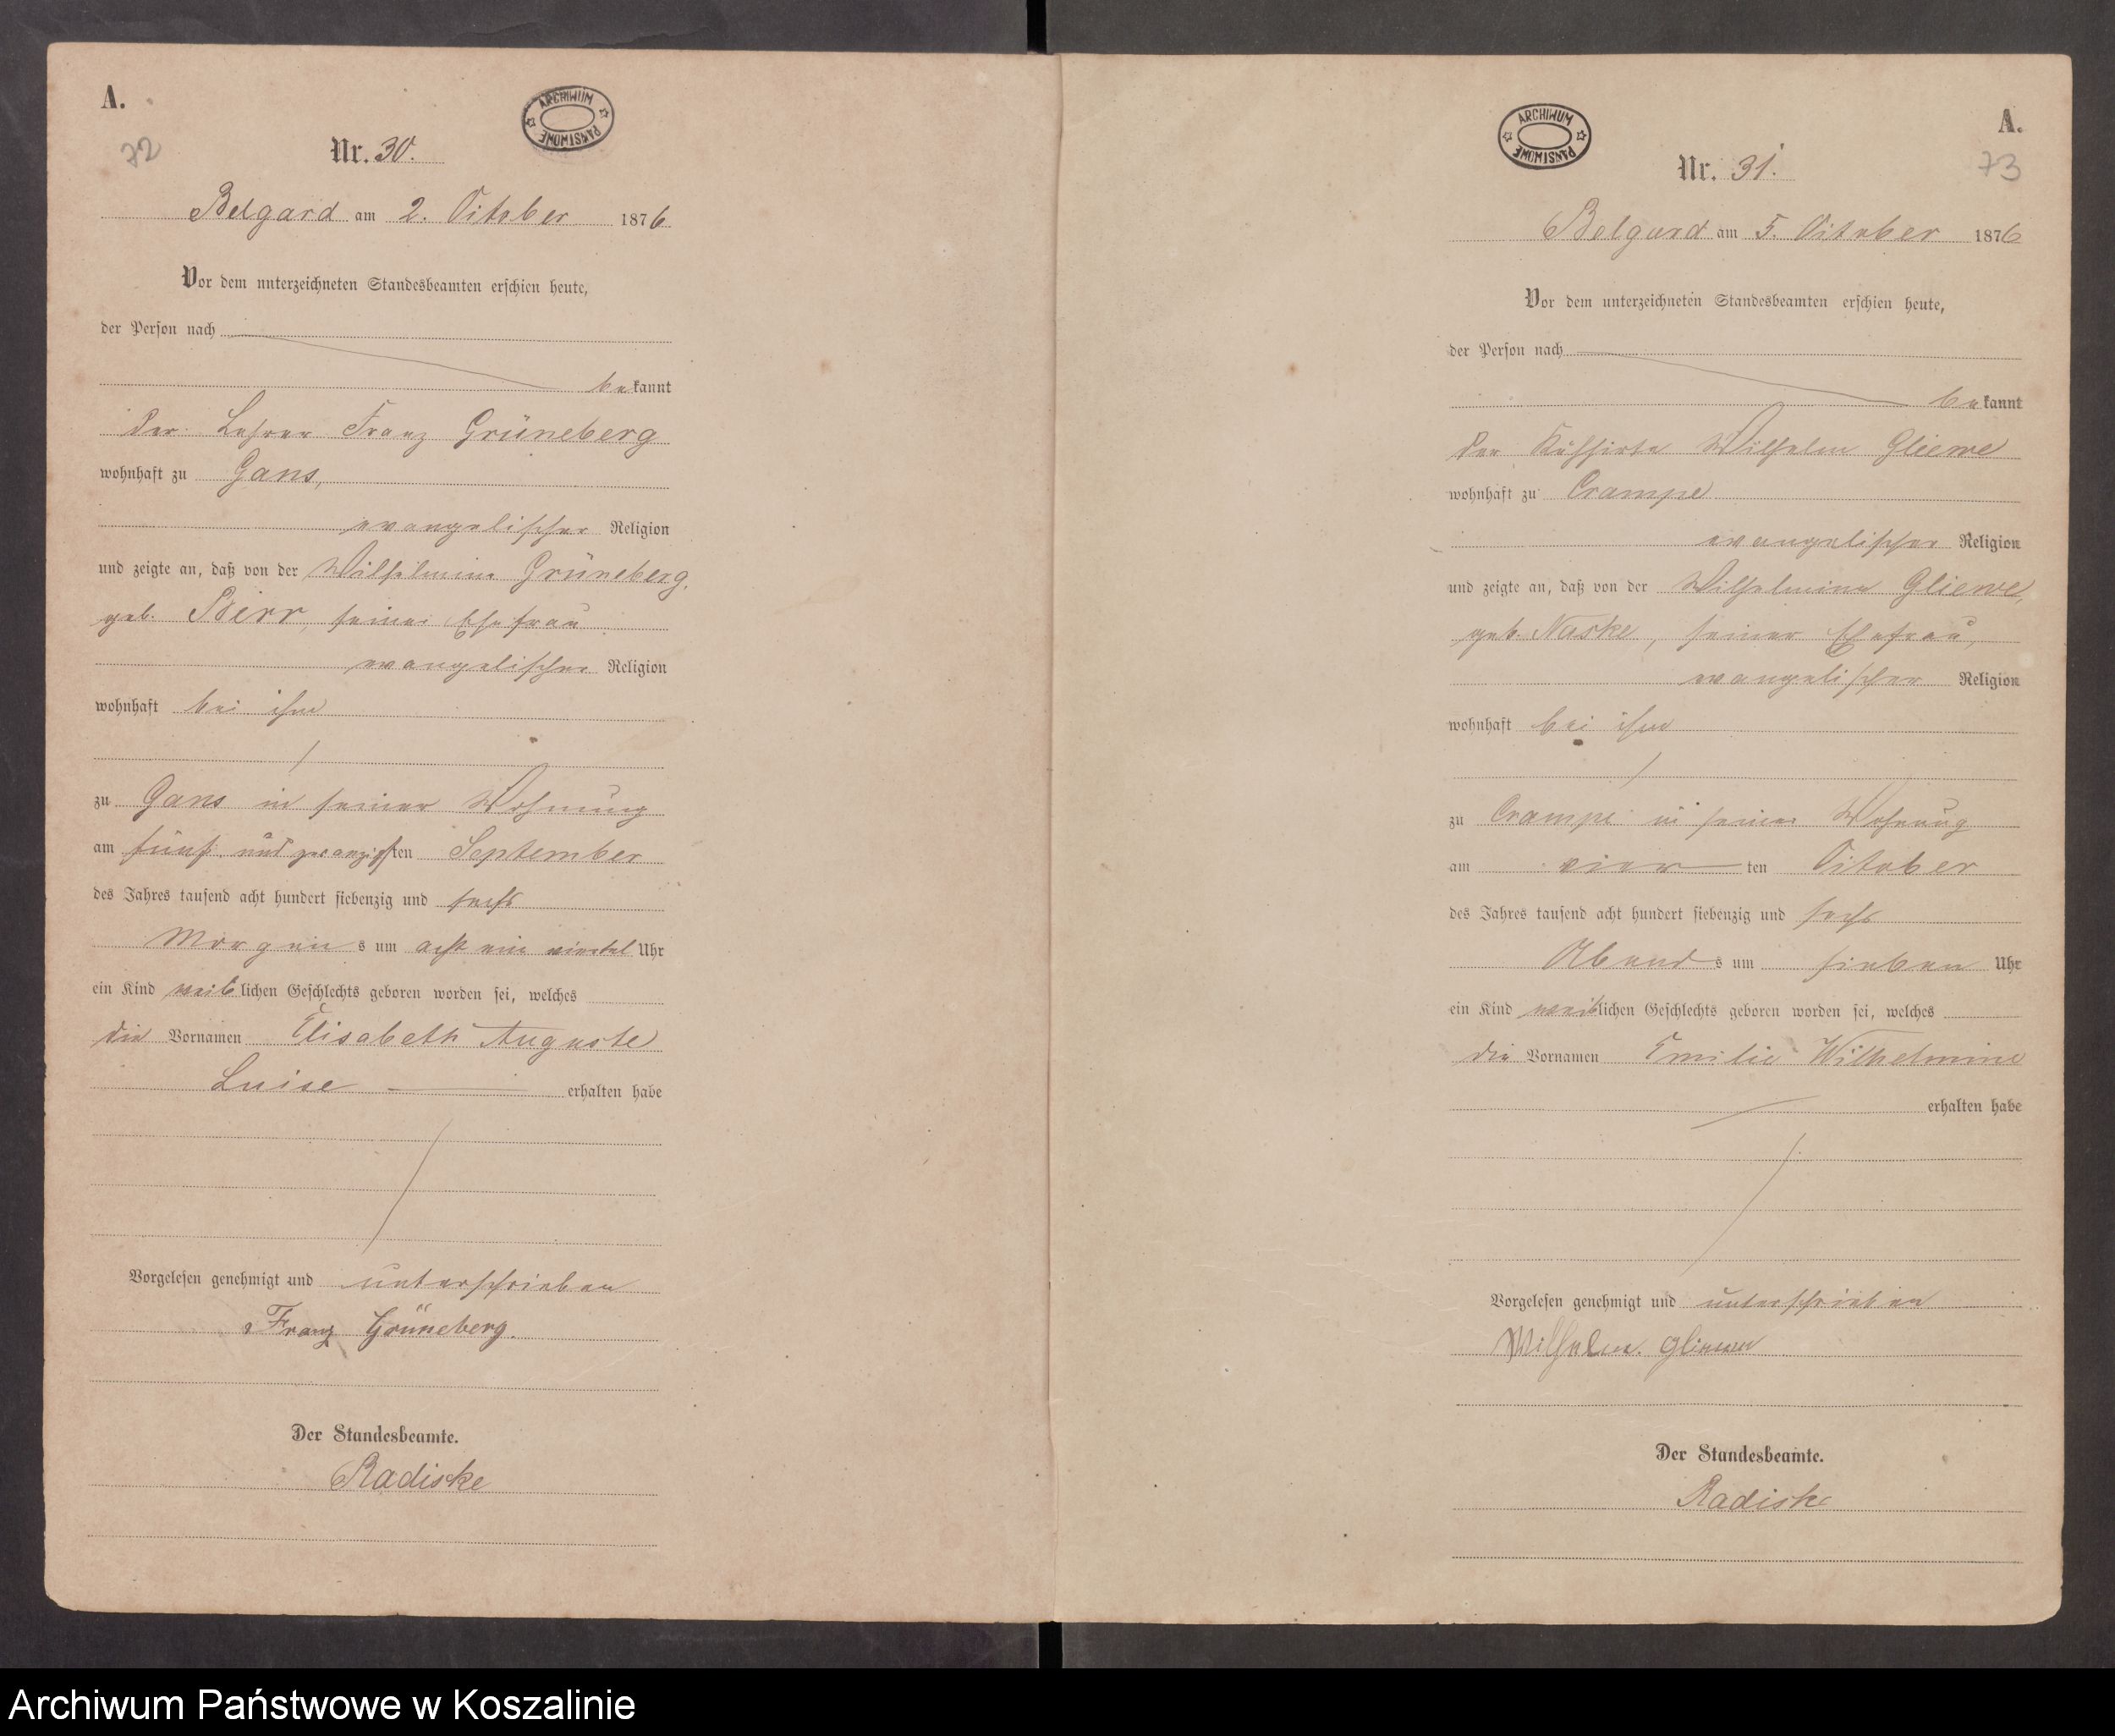 A.
72
ARCHIWUM PAŃSTWOWE
Nr. 30.
Belgard am 2. October 1876
Vor dem unterzeichneten Standesbeamten erschien heute,
der Person nach
bekannt
der Lehrer Franz Grüneberg
wohnhaft zu Gans,
evangelischer Religion
und zeigte an, daß von der Wilhelmine Grüneberg,
geb. Birr, seiner Ehefrau
evangelischer Religion
wohnhaft bei ihm
zu Gans in seiner Wohnung
am fünf und zwanzigsten September
des Jahres tausend acht hundert siebenzig und sechs
Morgens um acht ein viertel Uhr
ein Kind weiblichen Geschlechts geboren worden sei, welches
die Vornamen Elisabeth Auguste
Luise erhalten habe
Vorgelesen genehmigt und unterschrieben
Franz Grüneberg.
Der Standesbeamte.
Radiske
A.
73
ARCHIWUM PAŃSTWOWE
Nr. 31.
Belgard am 5. October 1876
Vor dem unterzeichneten Standesbeamten erschien heute,
der Person nach
bekannt
der Kuhhirte Wilhelm Gliewe
wohnhaft zu Crampe
evangelischer Religion
und zeigte an, daß von der Wilhelmine Gliewe,
geb. Naske, seiner Ehefrau,
evangelischer Religion
wohnhaft bei ihm
zu Crampe in seiner Wohnung
am vierten October
des Jahres tausend acht hundert siebenzig und sechs
Abends um sieben Uhr
ein Kind weiblichen Geschlechts geboren worden sei, welches
die Vornamen Emilie Wilhelmine
erhalten habe
Vorgelesen genehmigt und unterschrieben
Wilhelm. Gliewe
Der Standesbeamte.
Radiske
Archiwum Państwowe w Koszalinie